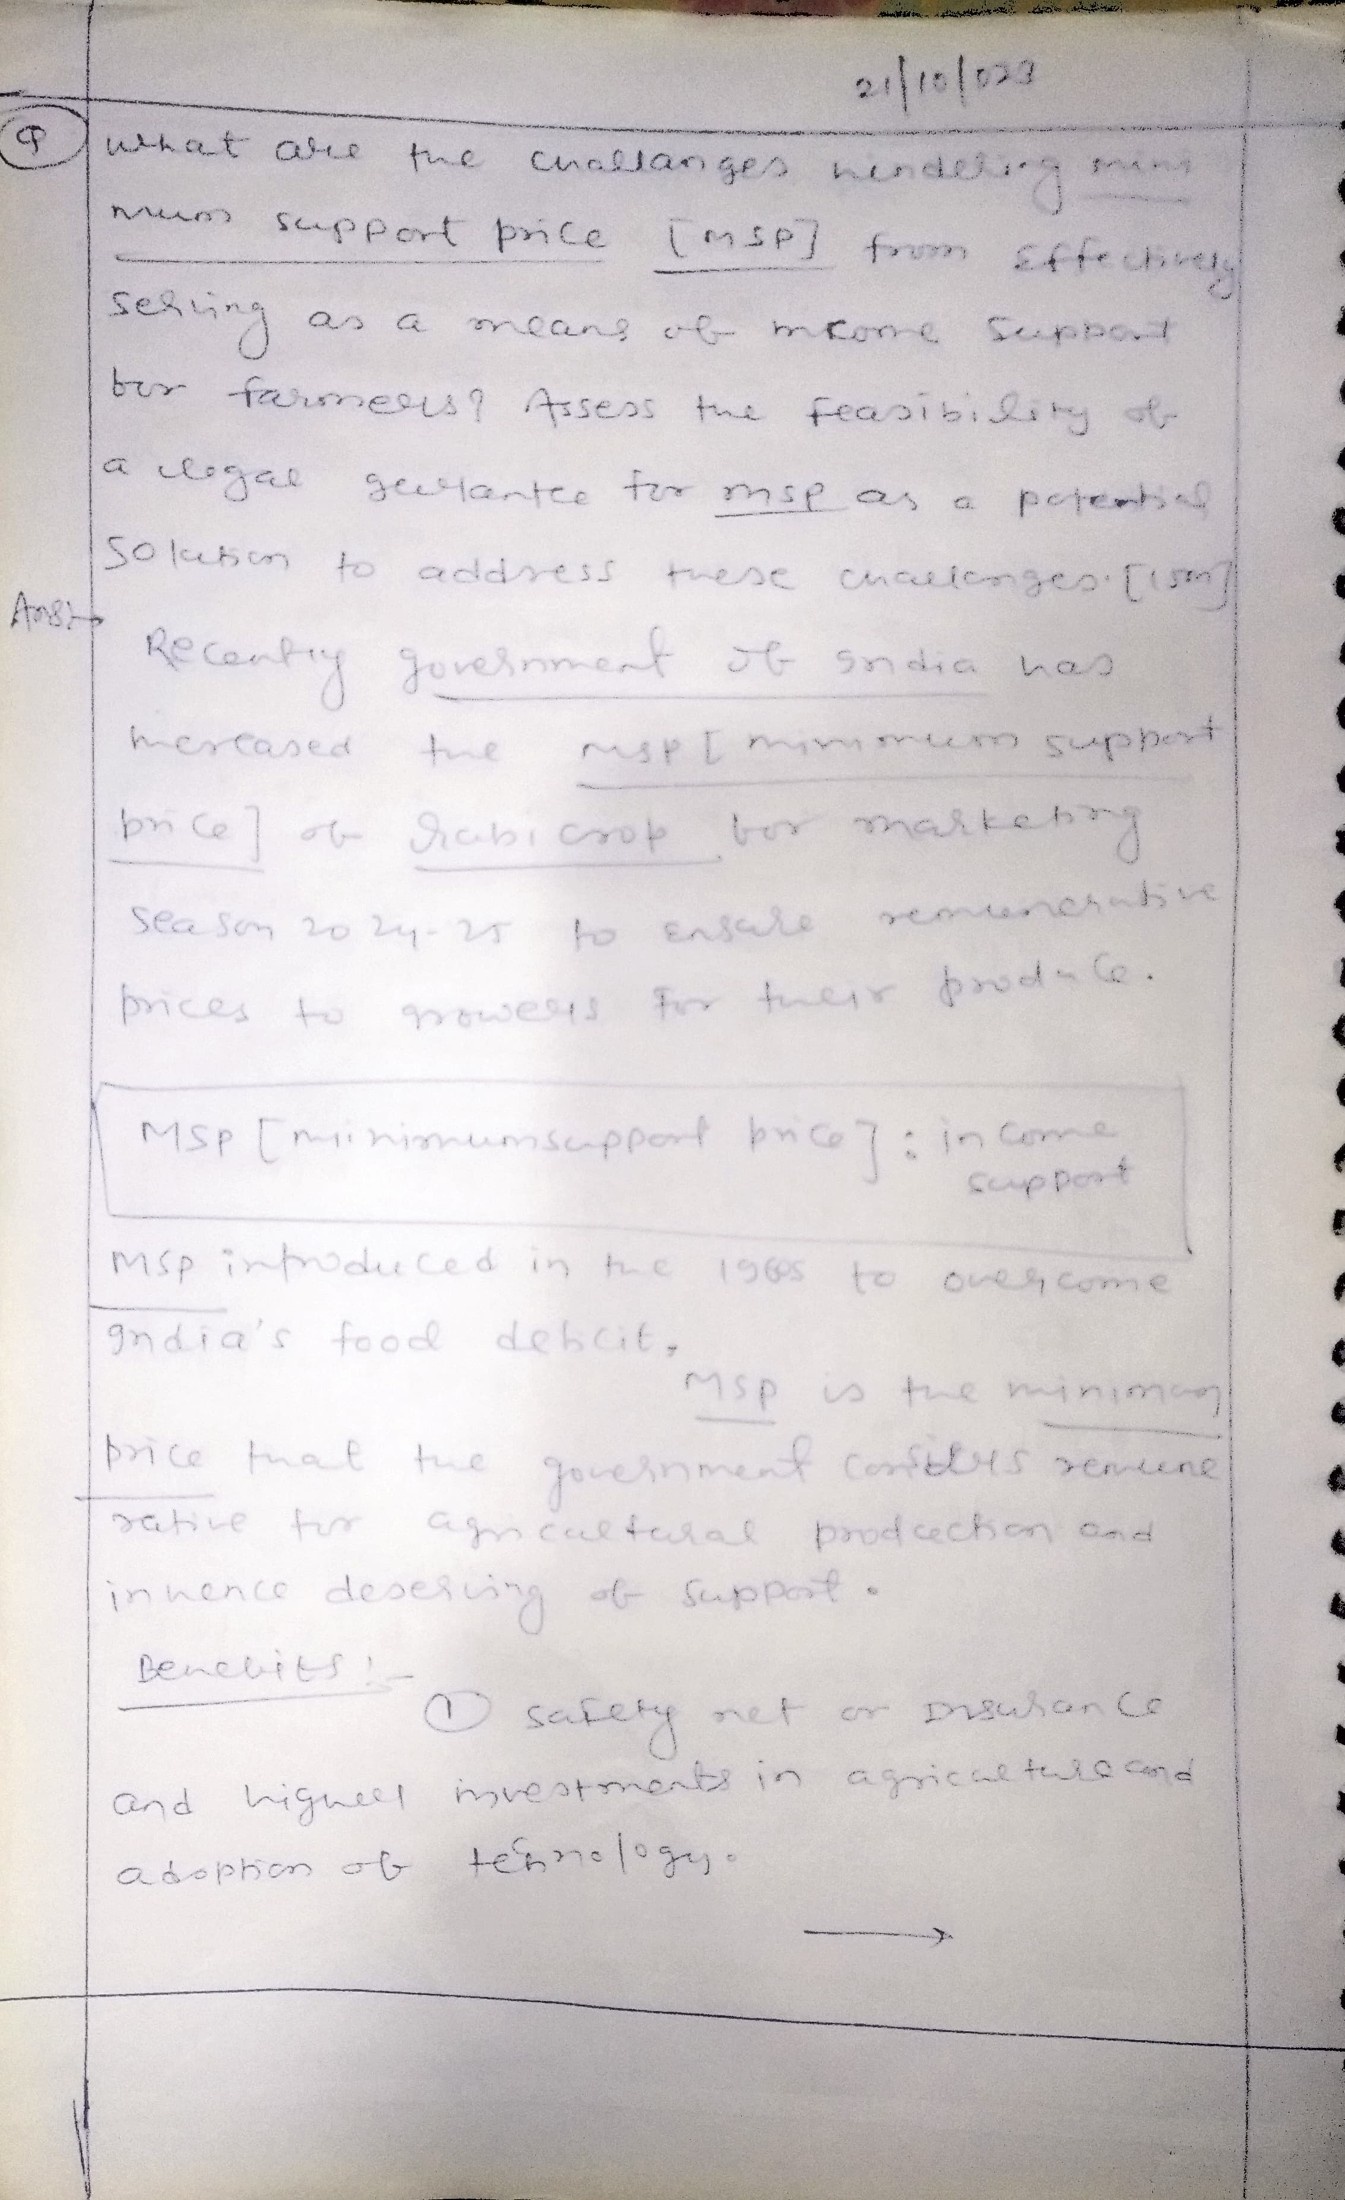 21/10/023
Q What are the challanges hindering mini
mum support price [MSP] from Effectively
serving as a means of income support
for farmers? Assess the feasibility of
a legal gurantee for MSP as a potential
solution to address these challanges. [15m]
Ans:→
Recently government of India has
increased the MSP [minimum support
price] of Rabi crop for marketing
season 2024-25 to ensure remunerative
prices to growers for their produce.
MSP [minimum support price] : income
support
MSP introduced in the 1960s to overcome
India's food deficit.
MSP is the minimum
price that the government considers remune
rative for agricultural production and
in hence deserving of support.
Benefits :-
① safety net or Insurance
and higher investments in agriculture and
adoption of tehnology.
→